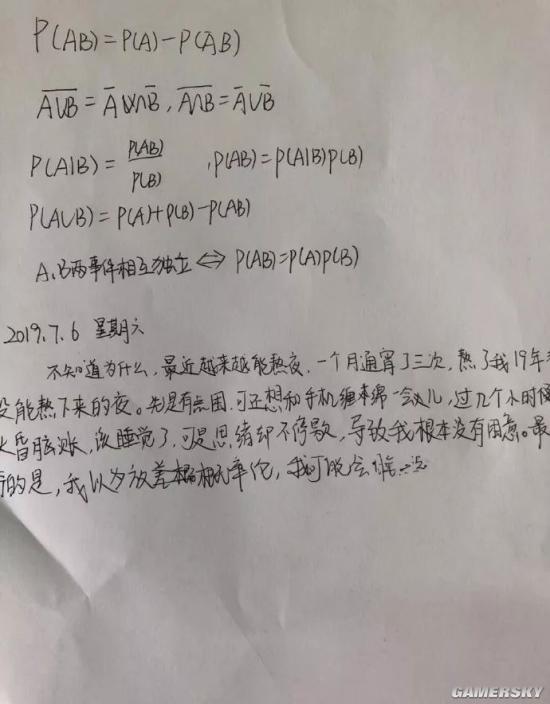 P(AB)=P(A)-P(A̅B)
A∪B̅ = A̅ ∩ B̅, A∩B̅ = A̅∪B̅
P(A|B)= P(AB)/P(B) , P(AB)=P(A|B)P(B)
P(A∪B)=P(A)+P(B)-P(AB)
A、B两事件相互独立⇔P(AB)=P(A)P(B)
2019.7.6 星期六
不知道为什么,最近越来越能熬夜,一个月通宵了三次,熬了我19年
没能熬下来的夜。先是有点困,可还想和手机缠绵一会儿,过几个小时
头昏脑胀,该睡觉了,可是思绪却不停歇,导致我根本没有困意。最
的是,我以为放着概率论,我可
GAMERSKY